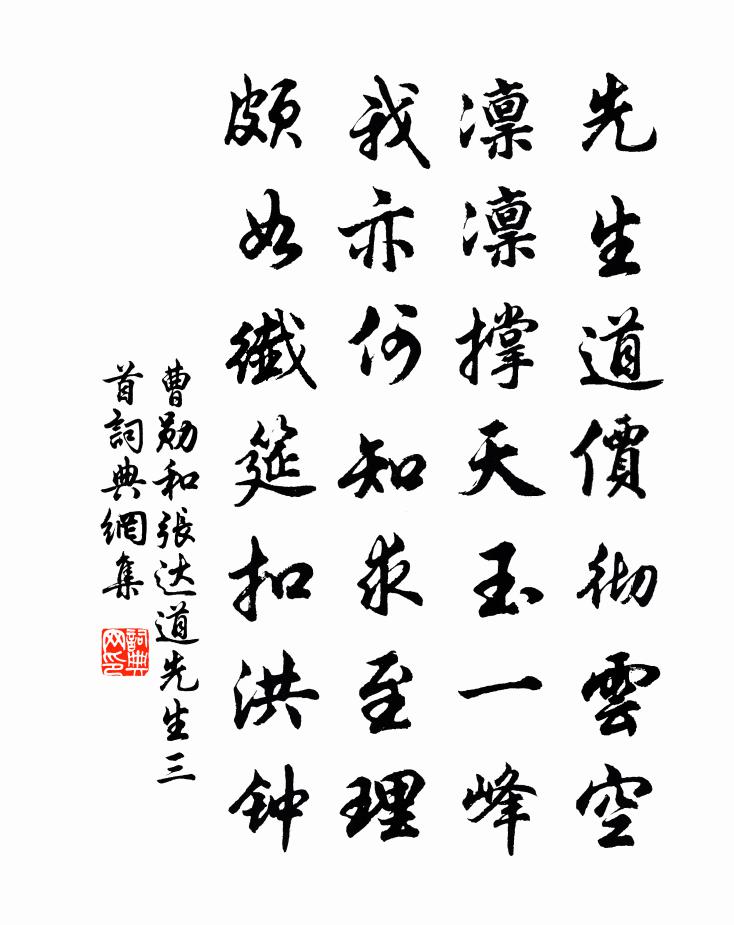 先生道價彻雲空
凛凛撑天玉一峰
我亦何知求至理
頗如纖筳扣洪钟
曹勋和張达道先生三
首詞典網集
詞典网印